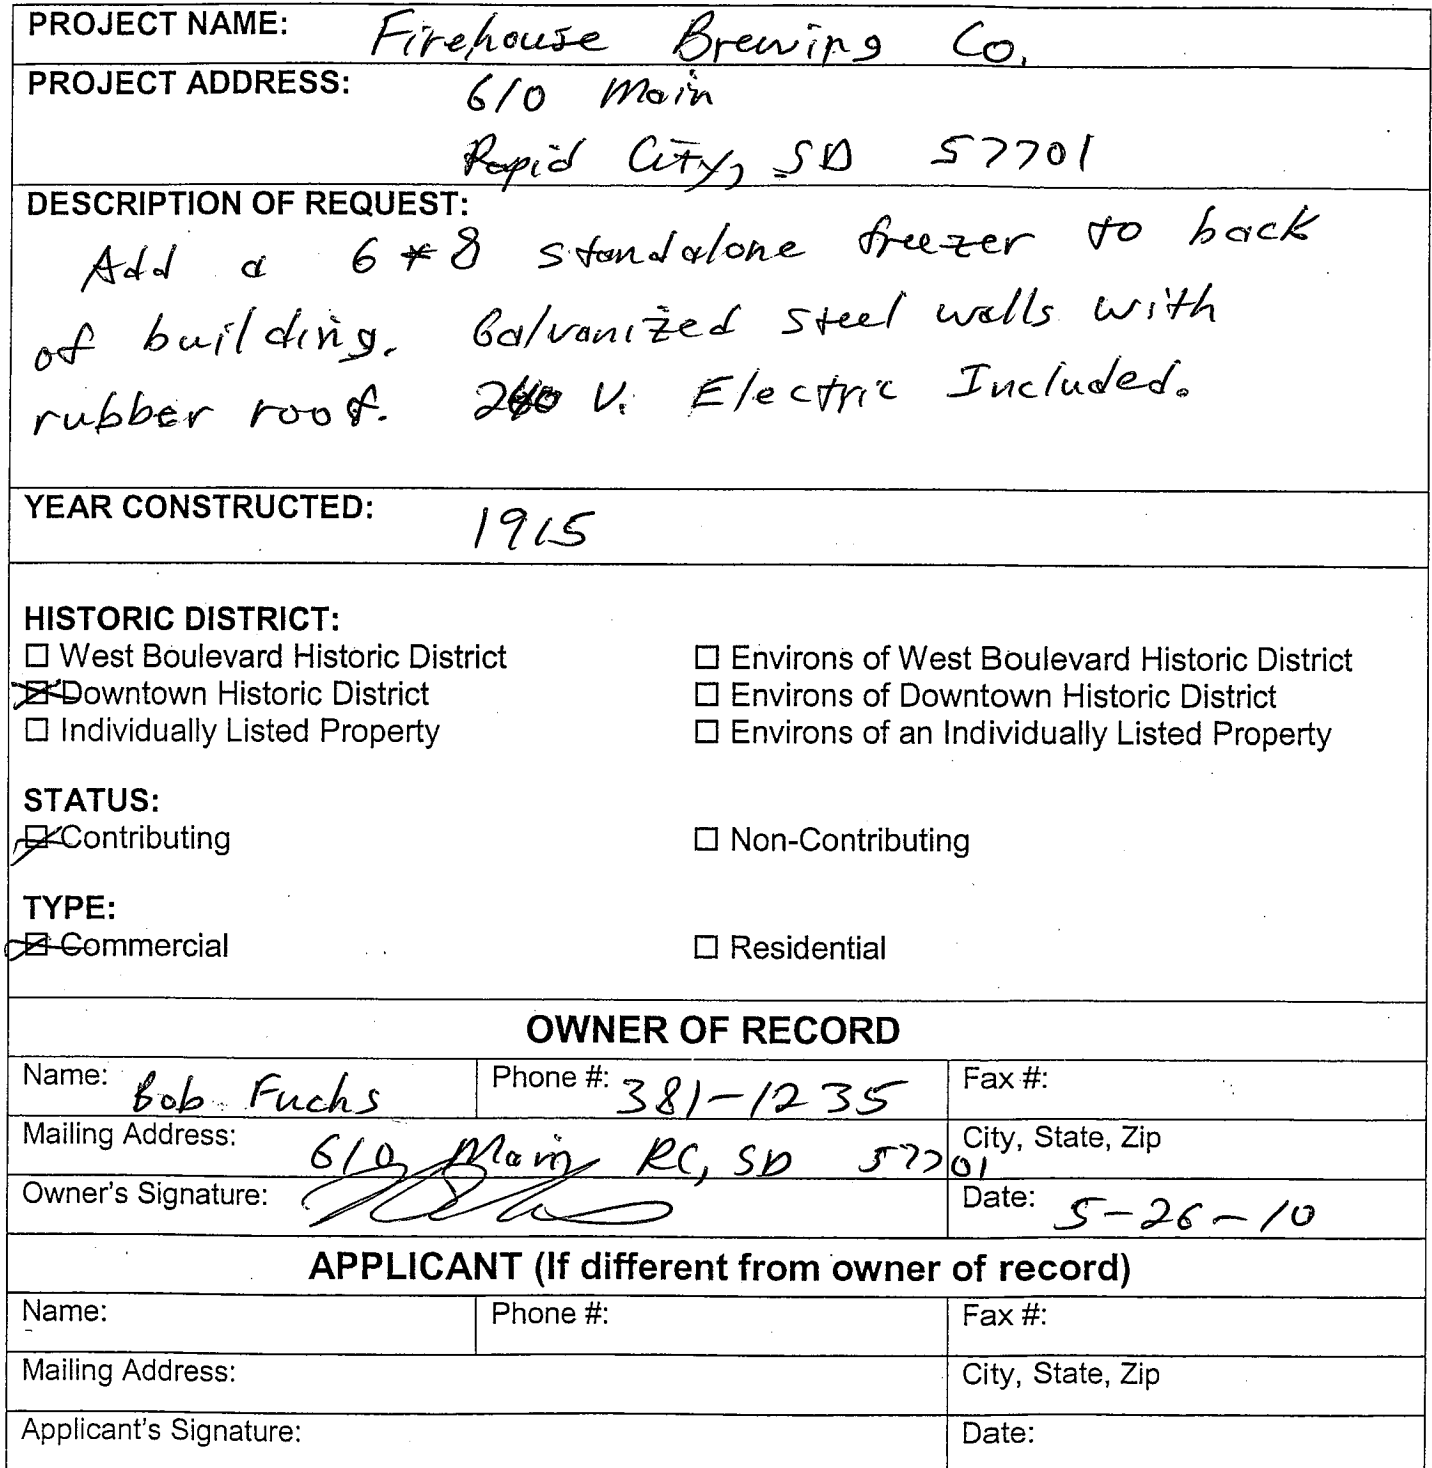 PROJECT NAME: Firehouse Brewing Co.
PROJECT ADDRESS: 610 Main
Rapid City, SD 57701
DESCRIPTION OF REQUEST:
Add a 6*8 standalone freezer to back
of building. Galvanized steel walls with
rubber roof. V. Electric Included.
YEAR CONSTRUCTED: 1915
HISTORIC DISTRICT:
☐ West Boulevard Historic District ☐ Environs of West Boulevard Historic District
☒ Downtown Historic District ☐ Environs of Downtown Historic District
☐ Individually Listed Property ☐ Environs of an Individually Listed Property
STATUS:
☒ Contributing ☐ Non-Contributing
TYPE:
☒ Commercial ☐ Residential
OWNER OF RECORD
Name: Bob Fuchs Phone #: 381-1235 Fax #:
Mailing Address: 610 Main RC, SD 57701 City, State, Zip
Owner's Signature: Date: 5-26-10
APPLICANT (If different from owner of record)
Name: Phone #: Fax #:
Mailing Address: City, State, Zip
Applicant's Signature: Date: